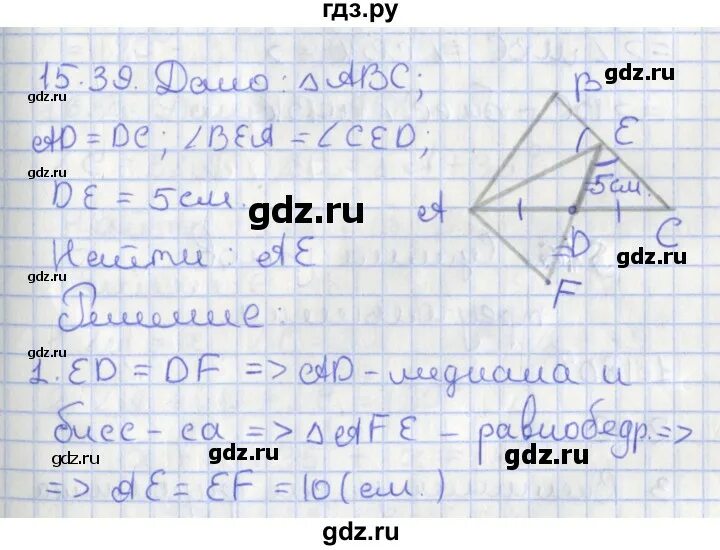 гдз.ру
15.39. Дано: △ABC;
AD = DC; ∠BEA = ∠CED;
DE = 5 см.
Найти: AE
Решение:
1. ED = DF => AD - медиана и
бисс-са => △AFE - равнобедр. =>
=> AE = EF = 10 (см.)
B
E
5 см.
A
D
C
F
gdz.ru
gdz.ru
gdz.ru
gdz.ru
gdz.ru
gdz.ru
gdz.ru
gdz.ru
gdz.ru
gdz.ru
gdz.ru
gdz.ru